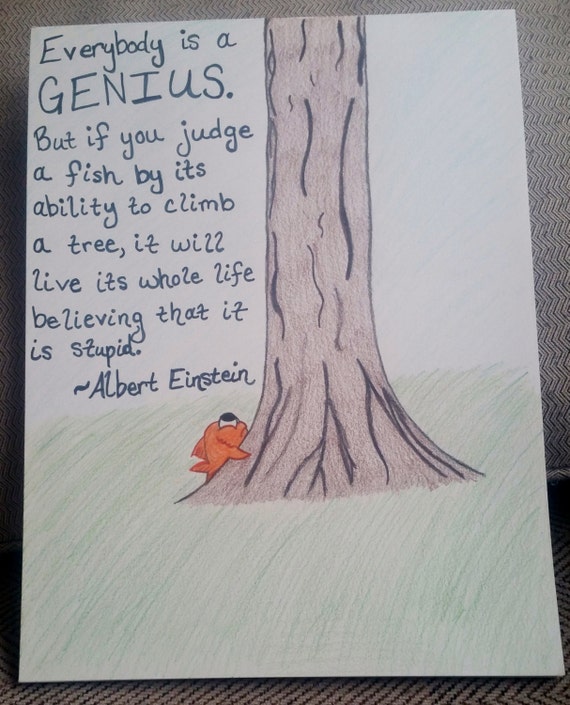 Everybody is a
GENIUS.
But if you judge
a fish by its
ability to climb
a tree, it will
live its whole life
believing that it
is stupid.
~Albert Einstein